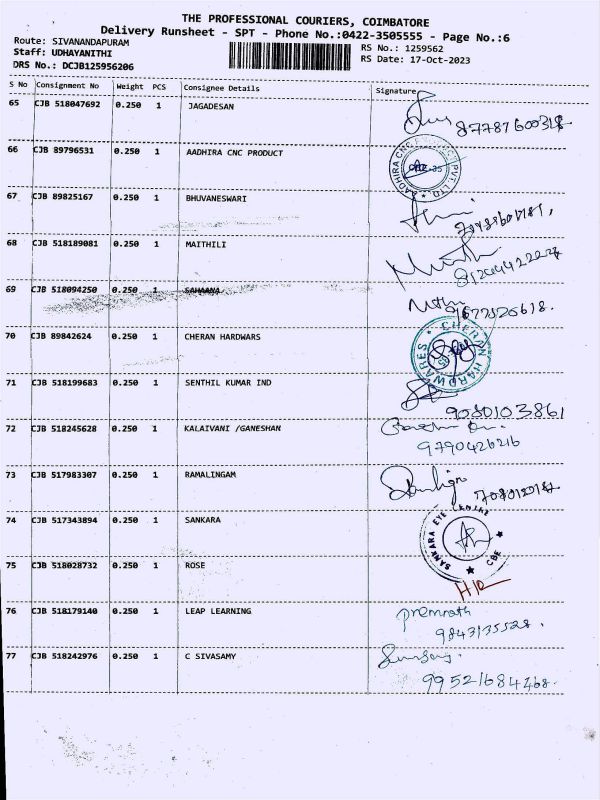 THE PROFESSIONAL COURIERS, COIMBATORE
Delivery Runsheet - SPT - Phone No.:0422-3505555 - Page No.:6
Route: SIVANANDAPURAM
Staff: UDHAYANITHI
RS No.: 1259562
DRS No.: DCJB125956206
RS Date: 17-Oct-2023
S No Consignment No Weight PCS Consignee Details Signature
65 CJB 518047692 0.250 1 JAGADESAN
66 CJB 89796531 0.250 1 AADHIRA CNC PRODUCT
67 CJB 89825167 0.250 1 BHUVANESWARI
68 CJB 518189081 0.250 1 MAITHILI
69 CJB 518094250 0.250 1 SAHAANA
70 CJB 89842624 0.250 1 CHERAN HARDWARS
CHERAN HARDWARES
71 CJB 518199683 0.250 1 SENTHIL KUMAR IND
9080103861
72 CJB 518245628 0.250 1 KALAIVANI /GANESHAN
9790426216
73 CJB 517983307 0.250 1 RAMALINGAM
74 CJB 517343894 0.250 1 SANKARA
SANKARA EYE CENTRE CBE
75 CJB 518028732 0.250 1 ROSE
76 CJB 518179140 0.250 1 LEAP LEARNING
9843135528.
77 CJB 518242976 0.250 1 C SIVASAMY